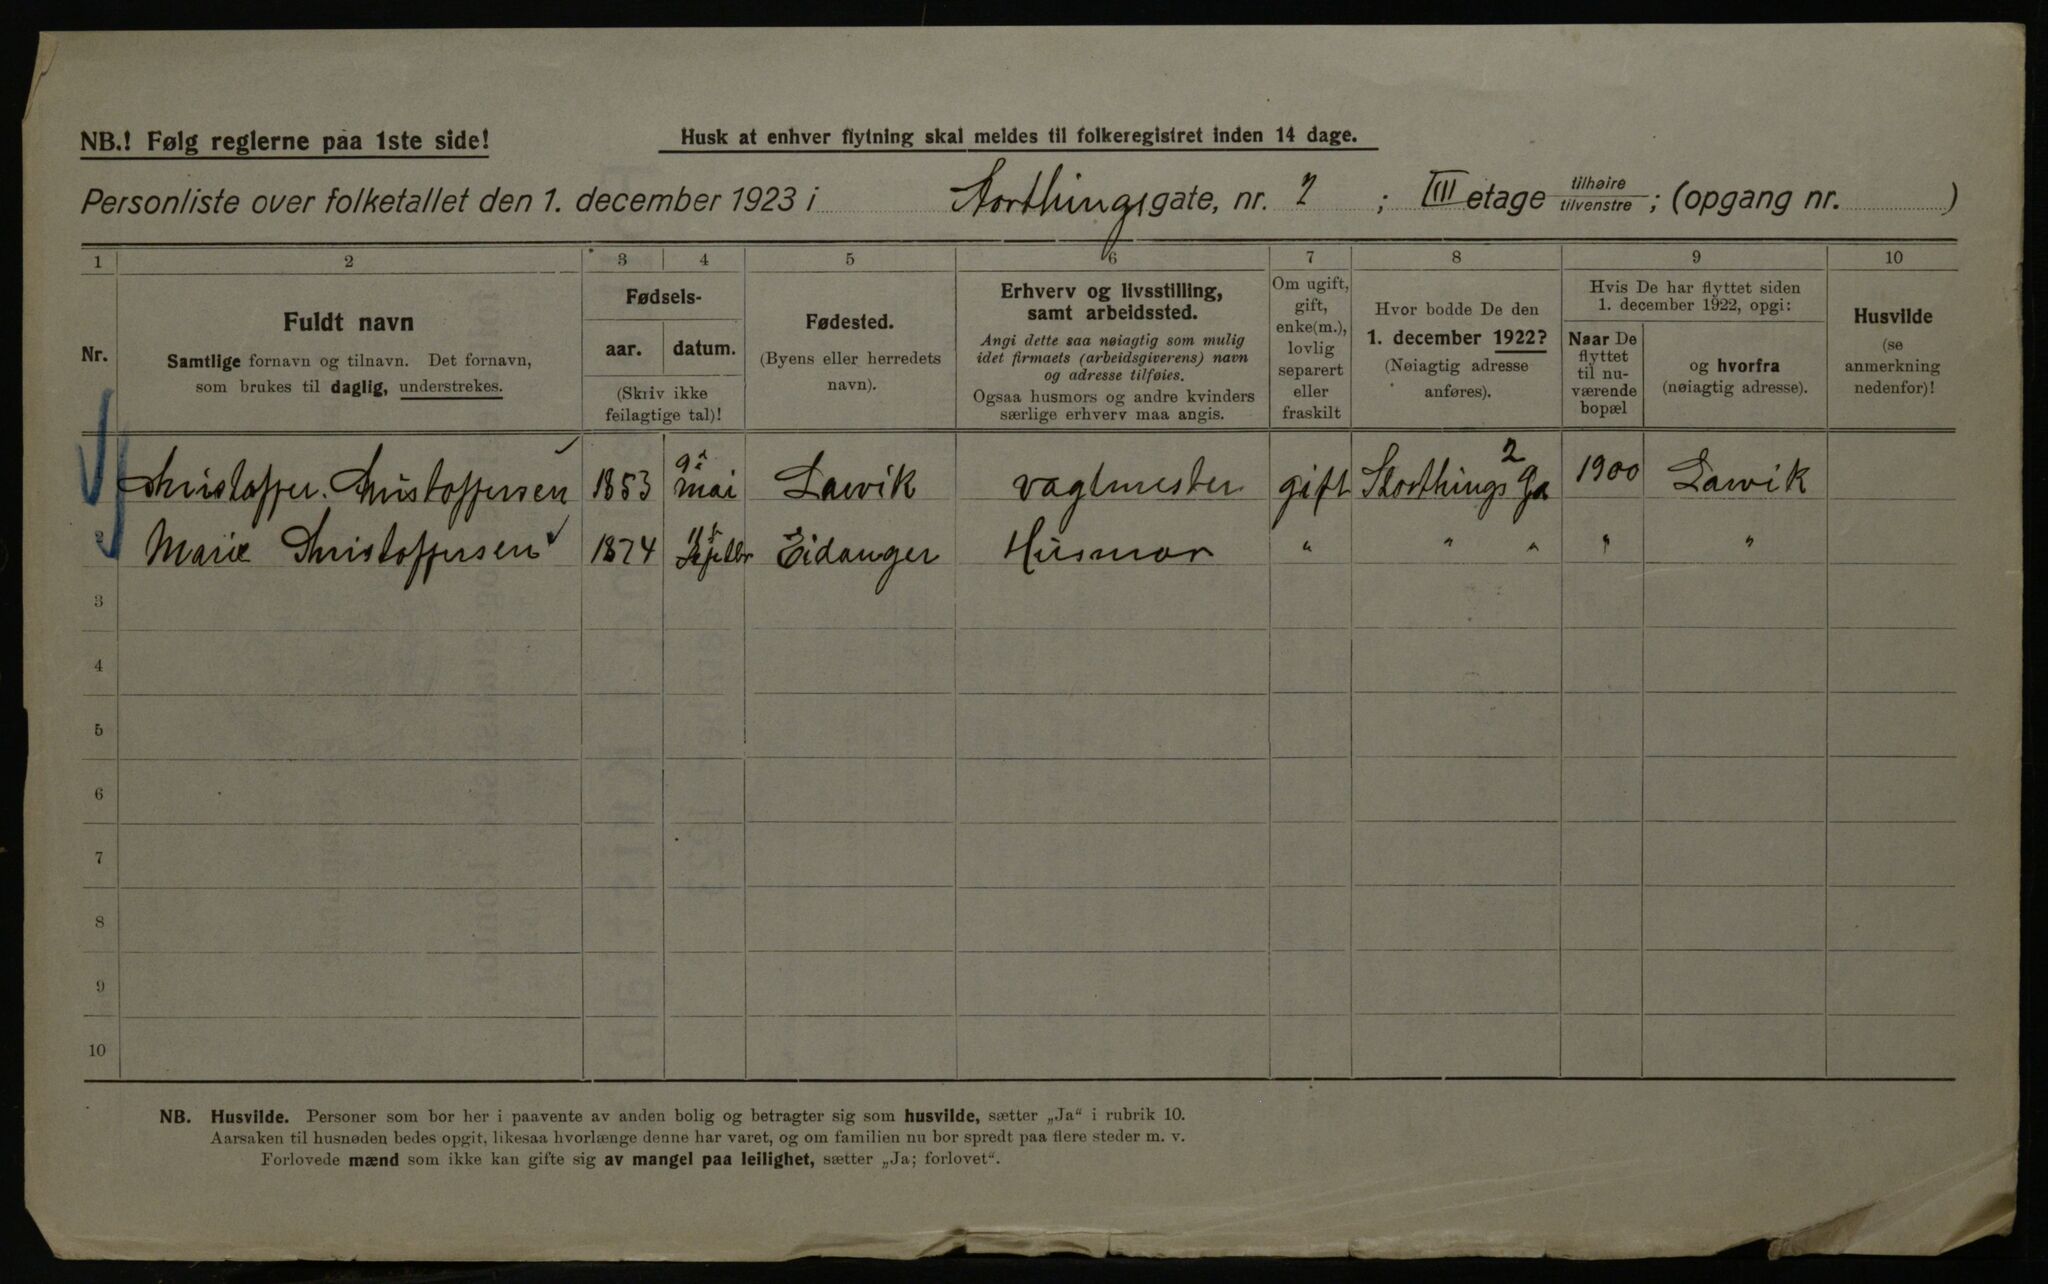 NB.! Følg reglerne paa 1ste side!
Husk at enhver flytning skal meldes til folkeregistret inden 14 dage.
Personliste over folketallet den 1. december 1923 i Storthingsgate, nr. 2 ; III etage tilhøire tilvenstre ; (opgang nr. )
1 2 3 4 5 6 7 8 9 10
Nr.
Fuldt navn
Samtlige fornavn og tilnavn. Det fornavn,
som brukes til daglig, understrekes.
Fødsels-
aar. datum.
(Skriv ikke
feilagtige tal)!
Fødested.
(Byens eller herredets
navn).
Erhverv og livsstilling,
samt arbeidssted.
Angi dette saa nøiagtig som mulig
idet firmaets (arbeidsgiverens) navn
og adresse tilføies.
Ogsaa husmors og andre kvinders
særlige erhverv maa angis.
Om ugift,
gift,
enke(m.),
lovlig
separert
eller
fraskilt
Hvor bodde De den
1. december 1922?
(Nøiagtig adresse
anføres).
Hvis De har flyttet siden
1. december 1922, opgi:
Naar De
flyttet
til nu-
værende
bopæl
og hvorfra
(nøiagtig adresse).
Husvilde
(se
anmerkning
nedenfor)!
Christoffer. Christoffersen 1853 9de mai Larvik vagtmester gift Storthings Ga 2 1900 Larvik
2 Marie Christoffersen 1874 Septbr Eidanger Husmor " " " " "
3
4
5
6
7
8
9
10
NB. Husvilde. Personer som bor her i paavente av anden bolig og betragter sig som husvilde, sætter „Ja“ i rubrik 10.
Aarsaken til husnøden bedes opgit, likesaa hvorlænge denne har varet, og om familien nu bor spredt paa flere steder m. v.
Forlovede mænd som ikke kan gifte sig av mangel paa leilighet, sætter „Ja; forlovet“.